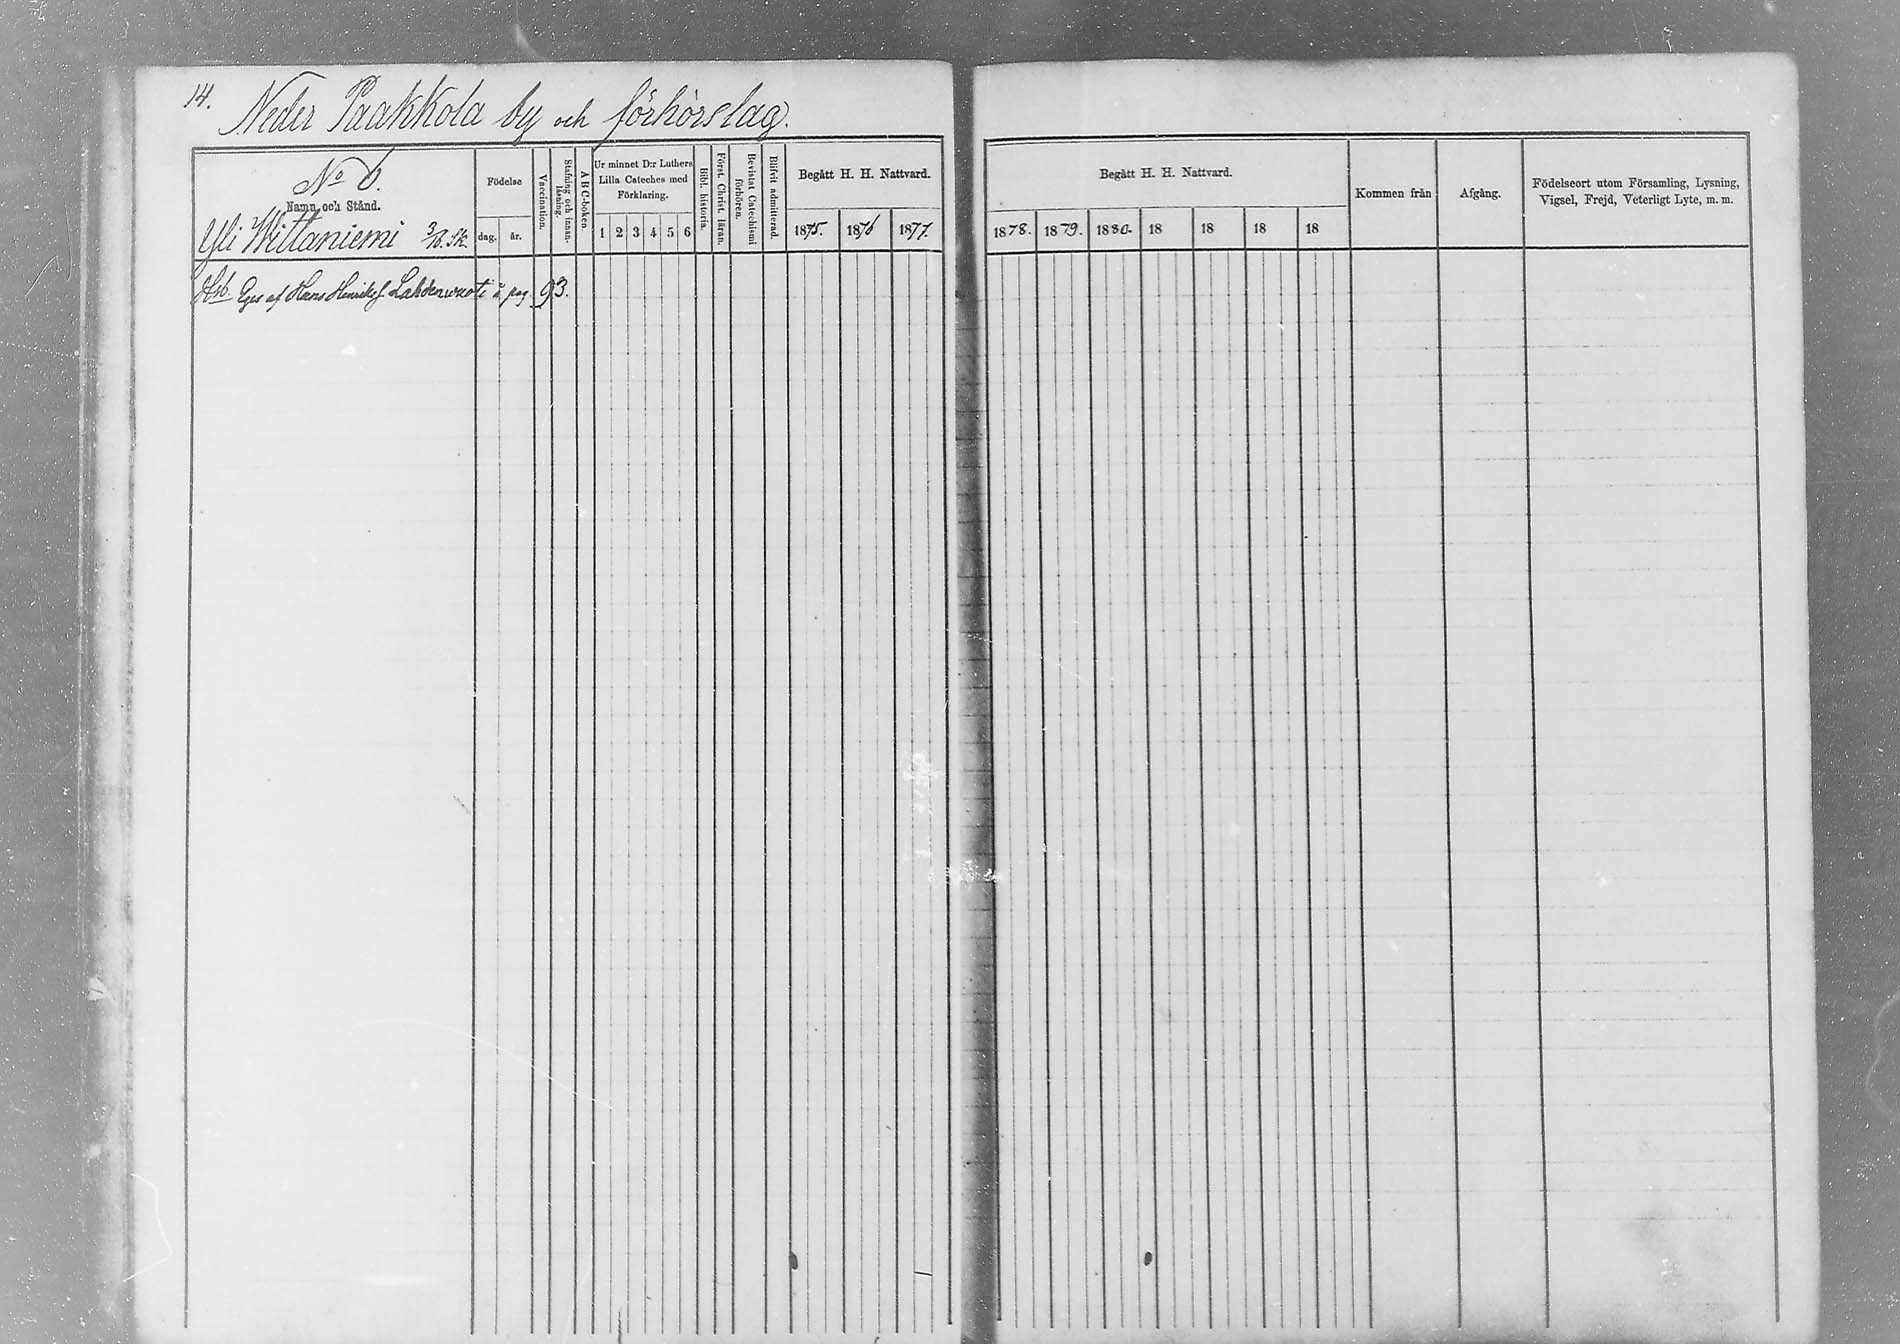 14.
Neder Paakkola by och förhörslag.
No 6.
Namn och Stånd.
Yli Wittaniemi 3/16. Sk.
Födelse
dag. år.
Vaccination.
Stafning och innanläsning.
ABC-boken.
Ur minnet D:r Luthers
Lilla Cateches med
Förklaring.
1 2 3 4 5 6
Bibl. historia.
Först. Christ. läran.
Bevistat Catechismi
förhören.
Blifvit admitterad.
Begått H. H. Nattvard.
1875. 1876 1877.
Hsb. Eges af Hans Henriks f. Lahdenwuoti å pag. 93.
Begått H. H. Nattvard.
1878. 1879. 1880. 18 18 18 18
Kommen från
Afgång.
Födelseort utom Församling, Lysning,
Vigsel, Frejd, Veterligt Lyte, m. m.